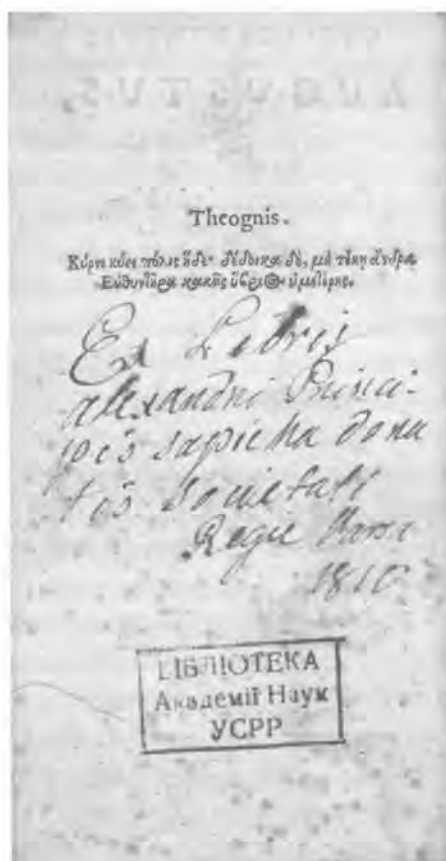 Theognis.
Κύρνε κύει πόλις ἥδε· δέδοικα δὲ, μὴ τέκῃ ἄνδρα
Εὐθυντῆρα κακῆς ὕβριος ὑμετέρης.
Ex Libris
alexandri Princi-
pis sapieha dona
tis Societati
Regie
1810
БІБЛІОТЕКА
Академії Наук
УСРР